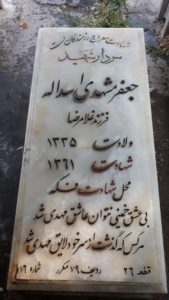 شهادت معراج رزمندگان است
سردار شهید
جعفر مشهدی اسداله
فرزند غلامرضا
ولادت ۱۳۳۵
شهادت ۱۳۶۱
محل شهادت فکه
بی عشق خمینی نتوان عاشق مهدی شد
هر کس که گذشت از سر خود لایق مهدی شد
قطعه ۲۶ ردیف ۷۹ مکرر شماره ۱۶